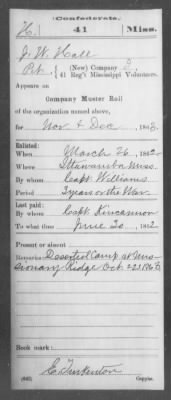 Confederate.
H. 41 Miss.
J. W. Hall
Pvt., (New) Company
41 Reg't Mississippi Volunteers.
Appears on
Company Muster Roll
of the organization named above,
for Nov & Dec, 1863.
Enlisted:
When March 26, 1862
Where Ittawamba Miss.
By whom Capt Williams
Period 3 years or the War
Last paid:
By whom Capt. Kincannon
To what time June 30, 1862
Present or absent
Remarks: Deserted Camp at Mis-
sionary Ridge Oct. 22 1863
Book mark:
(642) Copyist.